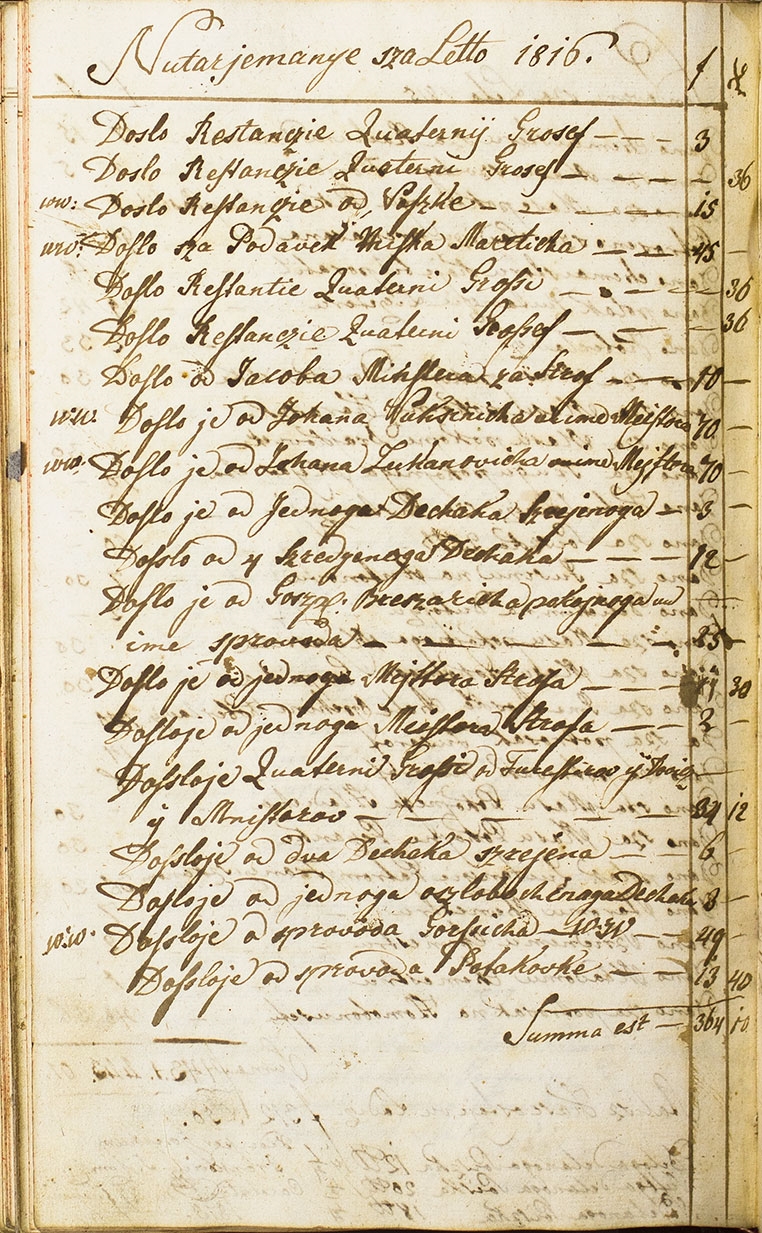 Nutarjemanye sza Letto 1816. f x
Doslo Restanczie Quaternij Grosef — — — 3
Doslo Restanczie Quaterni Grosef — — — 36
ww: Doslo Restanczie od Paszke — — — — 15
ww: Doslo sza Podavek Miska Marticha — — 45 —
Doslo Restantie Quaterni Grossi — — — 36
Doslo Restanczie Quaterni Grossef — — — 36
Doslo od Jacoba Minstera za Strof — — — 10 —
w:w: Doslo je od Johana Vuksinicha u ime Meistora 70 —
ww: Doslo je od Johana Lukanovicha u ime Mejstora 70 —
Doslo je od Jednoga Dechaka Szrejenoga — 3 —
Doslo od y Szredgenoga Dechaka — — — 12 —
Doslo je od Goszp. Breszaricha pokojnoga u
ime sprovoda — — — — — 25
Doslo je od jednoga Mejstora Strofa — — — 11 30
Dosloje od jednoga Meistora Strofa — — 2 —
Dossloje Quaterni Grossi od
ÿ Mnistorov — — — — — — 34 12
Dossloje od dva Dechaka szrejena — — 6 —
Dosloje od jednoga oszlobochenaga Dechaka 8 —
w:w. Dossloje od sprovoda Gorssicha — — 49 —
Dossloje od sprovoda Potakovke — — 13 40
Summa est — 364 10